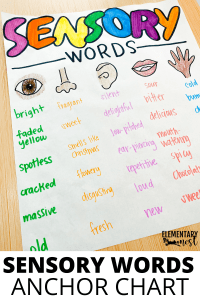 SENSORY
WORDS
bright
faded
yellow
spotless
cracked
massive
old
fragrant
sweet
smells like
christmas
flowery
disgusting
fresh
silence
delightful
low-pitched
ear-piercing
repetitive
loud
new
sour
bitter
delicious
mouth
watering
spicy
chocolate
sweet
cold
ELEMENTARY
nest
SENSORY WORDS
ANCHOR CHART